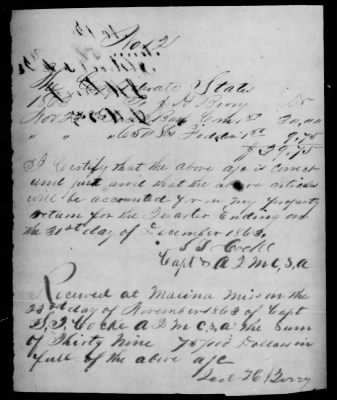 No 12
The Confederate States
1863 To J H Berry Dr
Nov 23 Bus Corn 30,00
" " 650 lbs Fodder 9,75
$ 39,75
I Certify that the above a/c is correct
and just and that the above articles
will be accounted for on my property
return for the Quarter Ending on
the 31st day of December 1863.
S. T. Cocke
Capt & A Q M C,S,A
Received at Macina Miss on the
23rd day of November 1863 of Capt
S. T. Cocke A Q M C,S,A the Sum
of Thirty Nine 75/100 Dollars in
full of the above a/c
H Berry